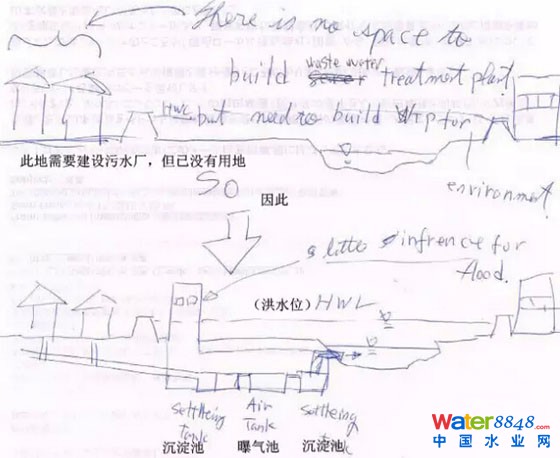 there is no space to
build waste water treatment plant
HWL but need to build STP for
environment
此地需要建设污水厂，但已没有用地
SO
因此
a little infrence for
flood.
(洪水位) HWL
Settleing Tank
Air Tank
Settleing
沉淀池
曝气池
沉淀池
Water8848.com
中国水业网